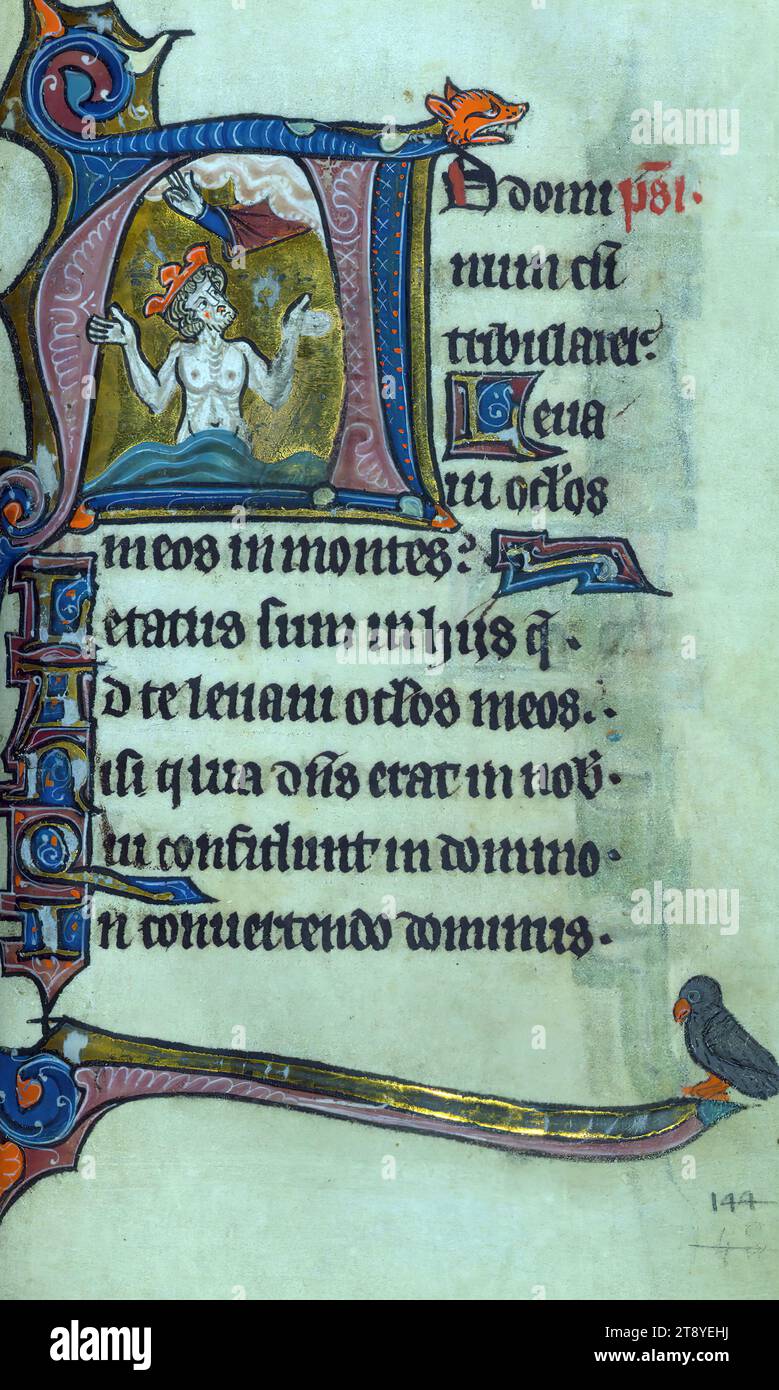 A Ddomi ps̄i.
num cū
tribularer?
Leva
vi oc̄los
meos in montes?
Letatus sum in hijs q̄.
Ad te levavi oc̄los meos.
Nisi quia dn̄s erat in nob̄.
Qui confidunt in domino.
In convertendo dominus.
144
alamy
Image ID: 2T8YEHJ
www.alamy.com